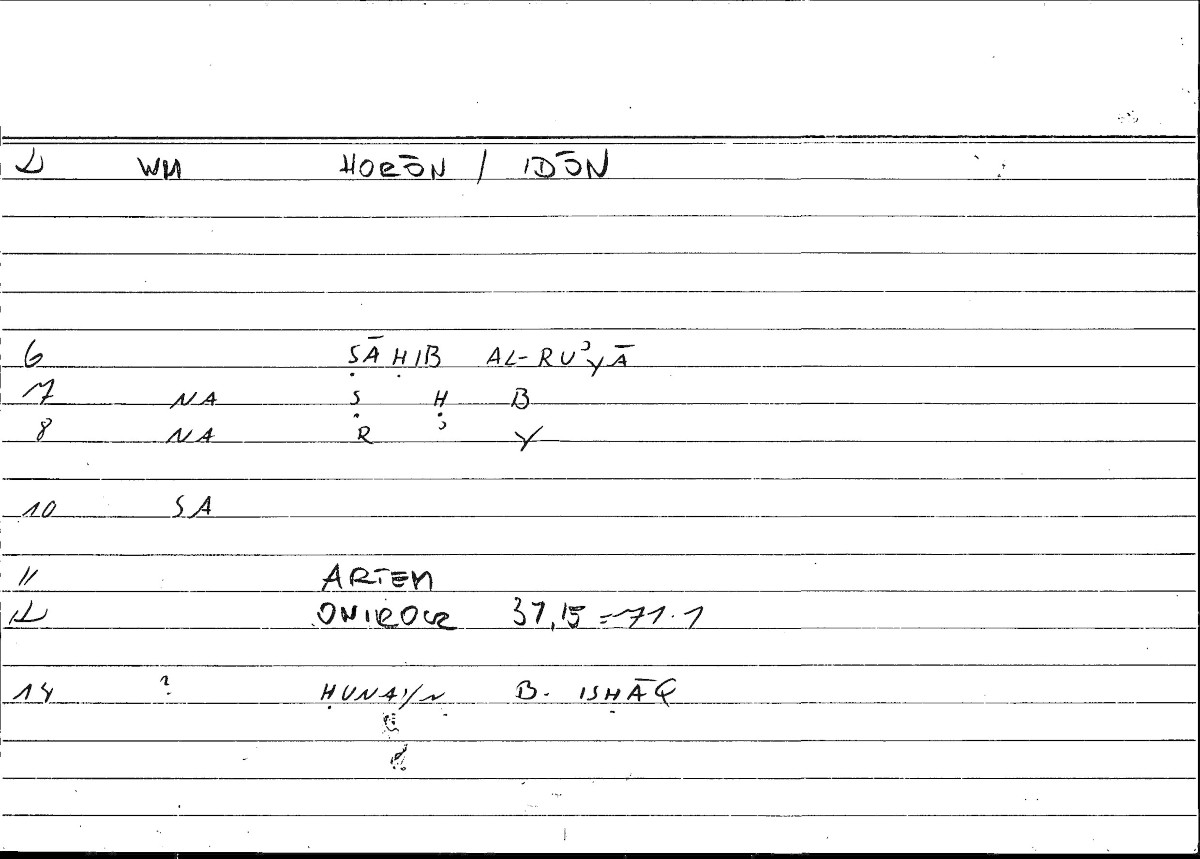 WM HORŌN / IDŌN
6 ṢĀḤIB AL-RUʾYĀ
7 NA Ṣ Ḥ B
8 NA R ʾ Y
10 SA
11 ARTEM
ONIROCR 37,15 = 71.1
14 ? ḤUNAYN B. ISḤĀQ